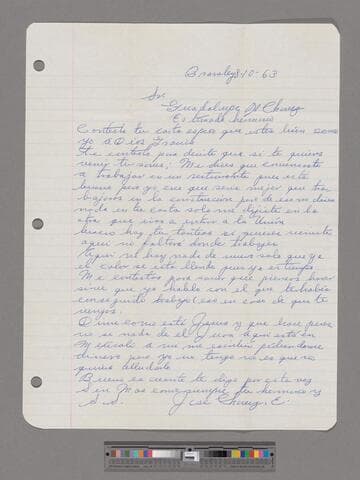 Brawley 8-10-63
Sr.
Guadalupe M. Chavez
Estimado hermano
Conteste tu carta espero que estes bien como
yo a Dios gracias
Te contesto para decirte que si te quieres
venir tu sabes. Me dices que comensaste
a trabajar en un
bueno pero yo creo que seria mejor que tra
bajaras en la construccion por de eso no dices
nada en tu carta solo me dijiste en la
otra que ivas a entrar a la Union
bueno hay tu tanteas si quieres venirte
aqui no faltara donde trabajes
Aqui no hay nada de nuevo solo que ya
el calor se esta llendo pues ya es tiempo
Me contestas para saber que piensas hacer
sirve que yo hablo con el que te habia
conseguido trabajo eso en caso de que te
vengas.
O mi como está Jesus y que hace pues
no se nada de el Jesus aqui esta en
Mexicali a mi me escribio pidiendome
dinero pero yo no tengo no es que no
quiera alludarlo
Bueno es cuanto te digo por esta vez
Sin Mas como siempre tu hermano y
S.S. Jose Chavez E.